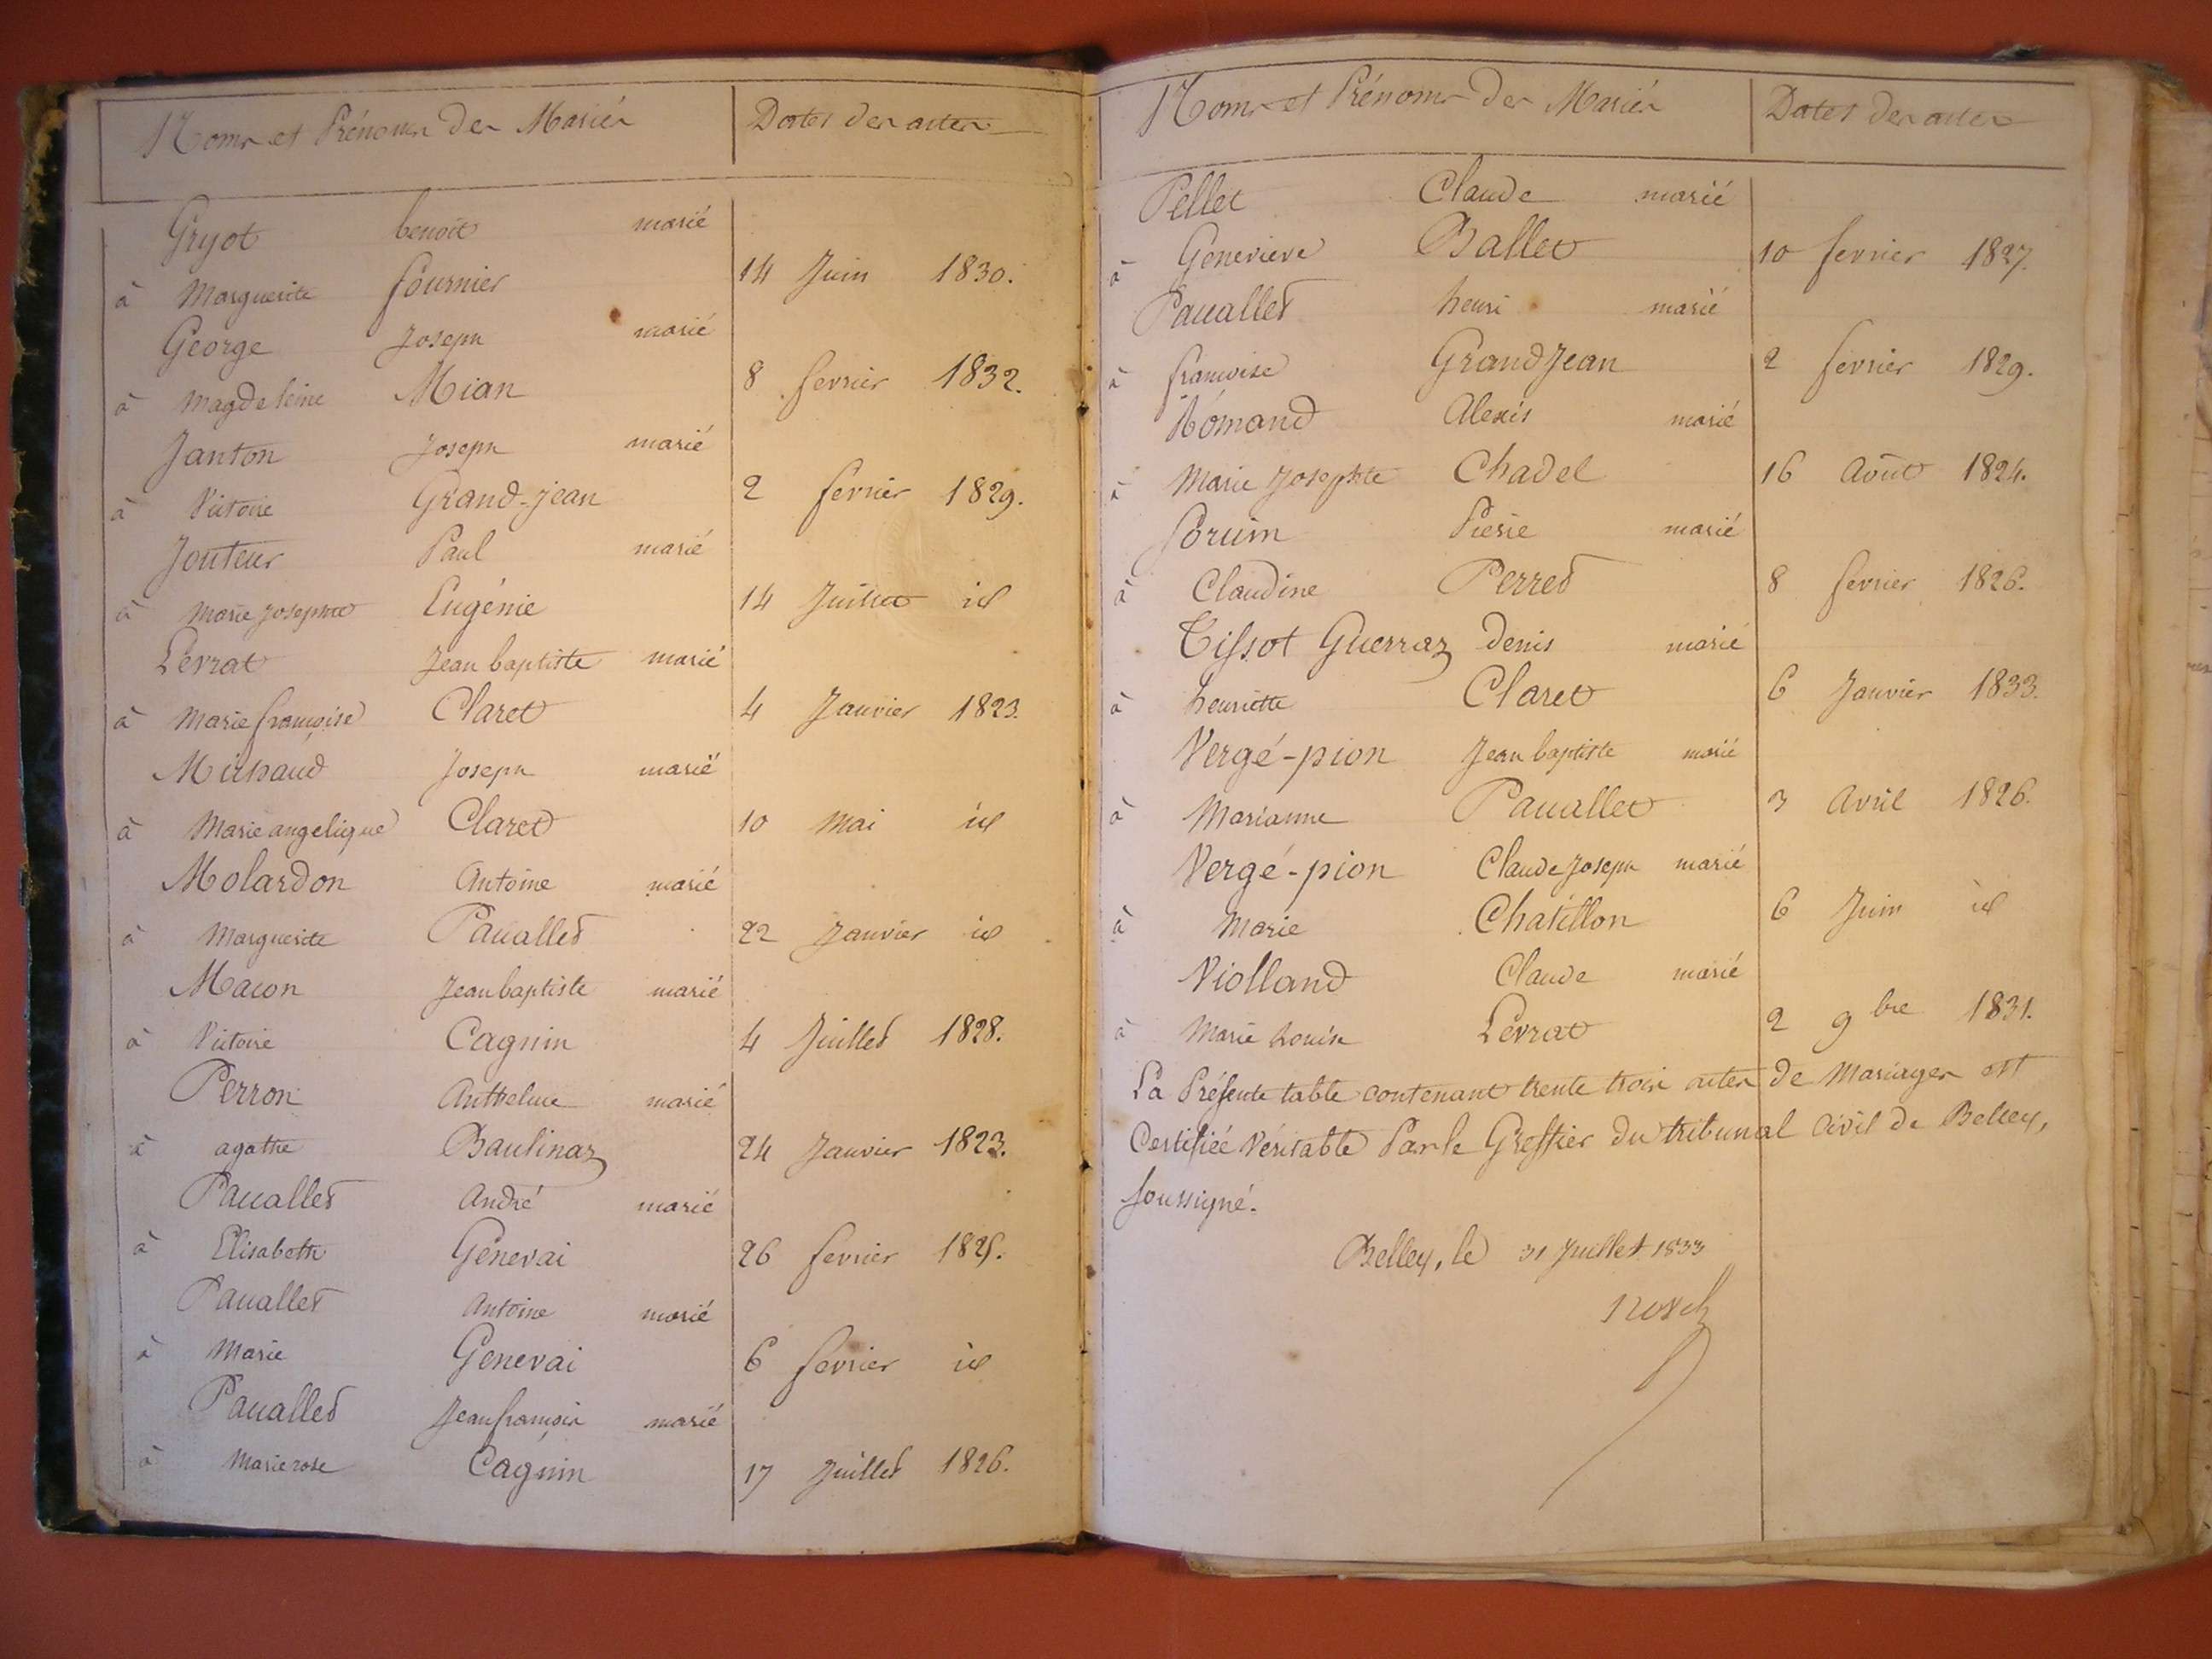 Noms et Prénoms des Mariés Dates des actes
Gryot benoit marié
à Marguerite fournier 14 Juin 1830.
George Joseph marié
à Magdeleine Mian 8 fevrier 1832.
Janton Joseph marié
à Victoire Grand-jean 2 fevrier 1829.
Jouteur Paul marié
à Marie Josephte Eugénie 14 Juillet id
Levrat Jean baptiste marié
à Marie françoise Claret 4 Janvier 1823.
Michaud Joseph marié
à Marie angelique Claret 10 Mai id
Molardon Antoine marié
à Marguerite Pauallet 22 Janvier id
Macon Jean baptiste marié
à Victoire Cagnin 4 Juillet 1828.
Perron Anthelme marié
à agathe Baulinaz 24 Janvier 1823.
Pauallet André marié
à Elisabeth Génevai 26 fevrier
Pauallet Antoine marié
à Marie Genevai 6 fevrier id
Pauallet Jean françois marié
à Marie rose Cagnin 17 Juillet 1826.
Noms et Prénoms des Mariés Dates des actes
Pellet Claude marié
à Genevieve Ballet 10 fevrier 1827.
Pauallet henri marié
à françoise GrandJean 2 fevrier 1829.
Romand Alexis marié
à Marie Josephte Chadel 16 Août 1824.
Sorum Pierre marié
à Claudine Perret 8 fevrier 1826.
Tissot Guerraz denis marié
à henriette Claret 6 Janvier 1833.
Vergé-pion Jean baptiste marié
à Marianne Pauallet 3 Avril 1826.
Vergé-pion Claude Joseph marié
à Marie Chatillon 6 Juin id
Violland Claude marié
à Marie Louise Levrat 2 9bre 1831.
La Présente table contenant trente trois actes de Mariages est
Certifiée Véritable Par le Greffier du tribunal Civil de Belley,
soussigné.
Belley, le 31 Juillet 1833